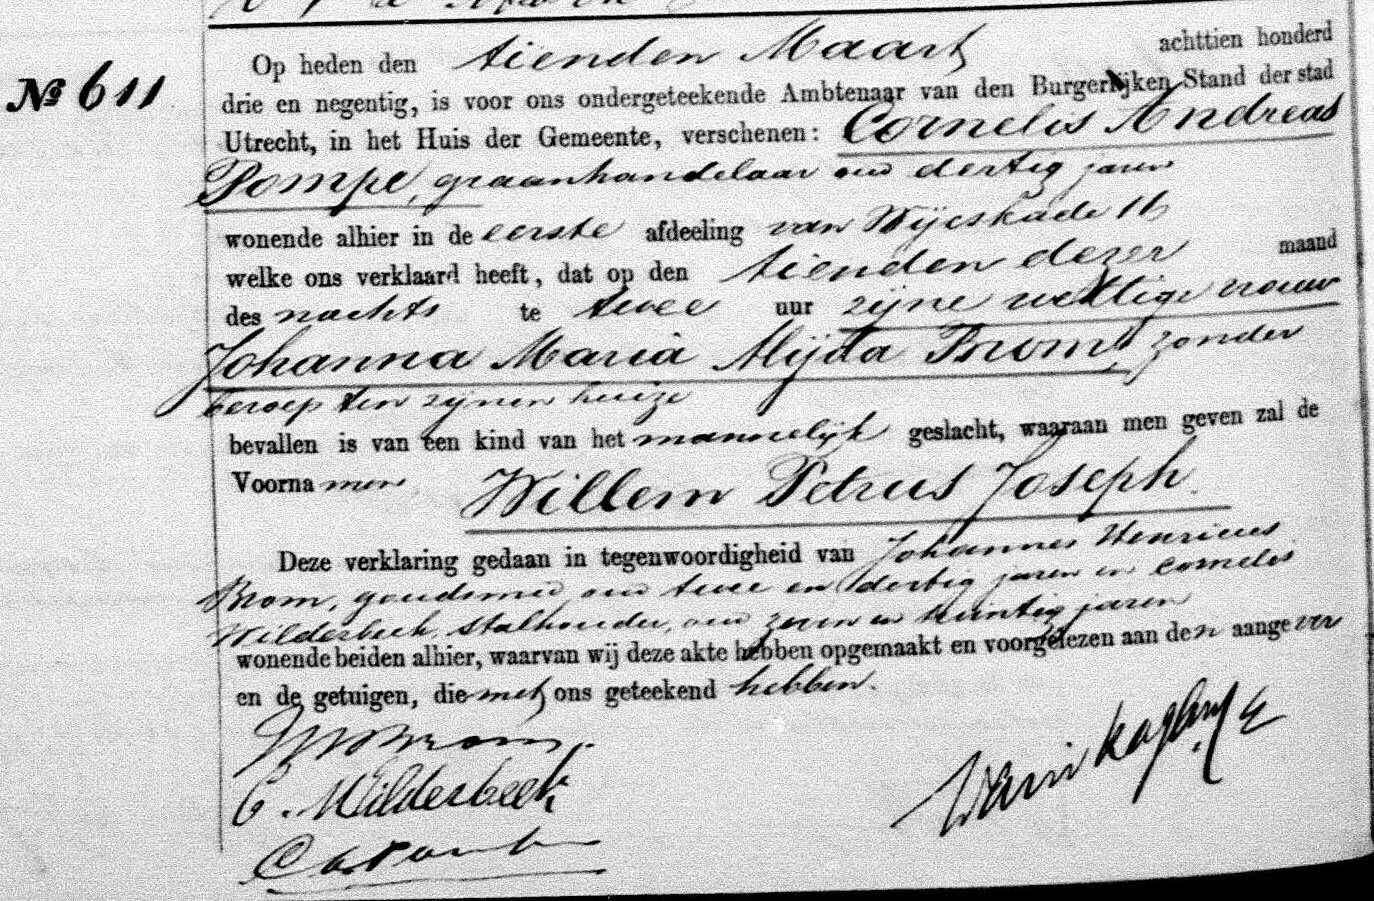 Op heden den tienden Maart achttien honderd
№ 611
drie en negentig, is voor ons ondergeteekende Ambtenaar van den Burgerlijken Stand der stad
Utrecht, in het Huis der Gemeente, verschenen: Cornelis Andreas
Pompe, graanhandelaar oud dertig jaren
wonende alhier in de eerste afdeeling van Wijckskade 16
welke ons verklaard heeft, dat op den tienden dezer maand
des nachts te twee uur zijne wettige vrouw
Johanna Maria Alijda Brom, zonder
beroep ten zijnen huize
bevallen is van een kind van het mannelijk geslacht, waaraan men geven zal de
Voornamen Willem Petrus Joseph
Deze verklaring gedaan in tegenwoordigheid van Johannes Henricus
Brom, goudsmid oud twee en dertig jaren en Cornelis
Wilderbeek, stalhouder, oud zeven en twintig jaren
wonende beiden alhier, waarvan wij deze akte hebben opgemaakt en voorgelezen aan den aangever
en de getuigen, die met ons geteekend hebben.
JH Brom.
C. Wilderbeek